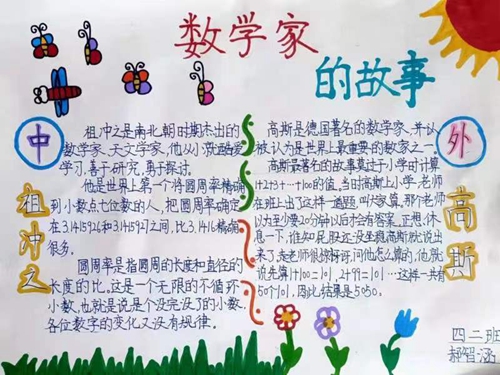 数学家
的故事
中
祖冲之
祖冲之是南北朝时期杰出的
数学家、天文学家,他从小就酷爱
学习,善于研究,勇于探讨。
他是世界上第一个将圆周率精确
到小数点七位数的人,把圆周率确定
在3.1415926和3.1415927之间,比3.14精确
很多。
圆周率是指圆周的长度和直径的
长度的比。这是一个无限的不循环
小数,也就是说是个没完没了的小数,
各位数字的变化又没有规律。
外
高斯
高斯是德国著名的数学家,并认
被认为是世界上最重要的数家之一。
高斯最著名的故事莫过于小学时计算
1+2+3+…+100的值,当时高斯上小学,老师
在班上出了这样一道题,叫大家算,那个老师
以为至少要20分钟以后才会有答案,正想休
息一下,谁知屁股还没坐稳高斯就说出
来了。老师很惊讶,问他怎么算的,他就
说先算1+100=101,2+99=101…这样一共有
50个101,因此结果是5050.
四二班